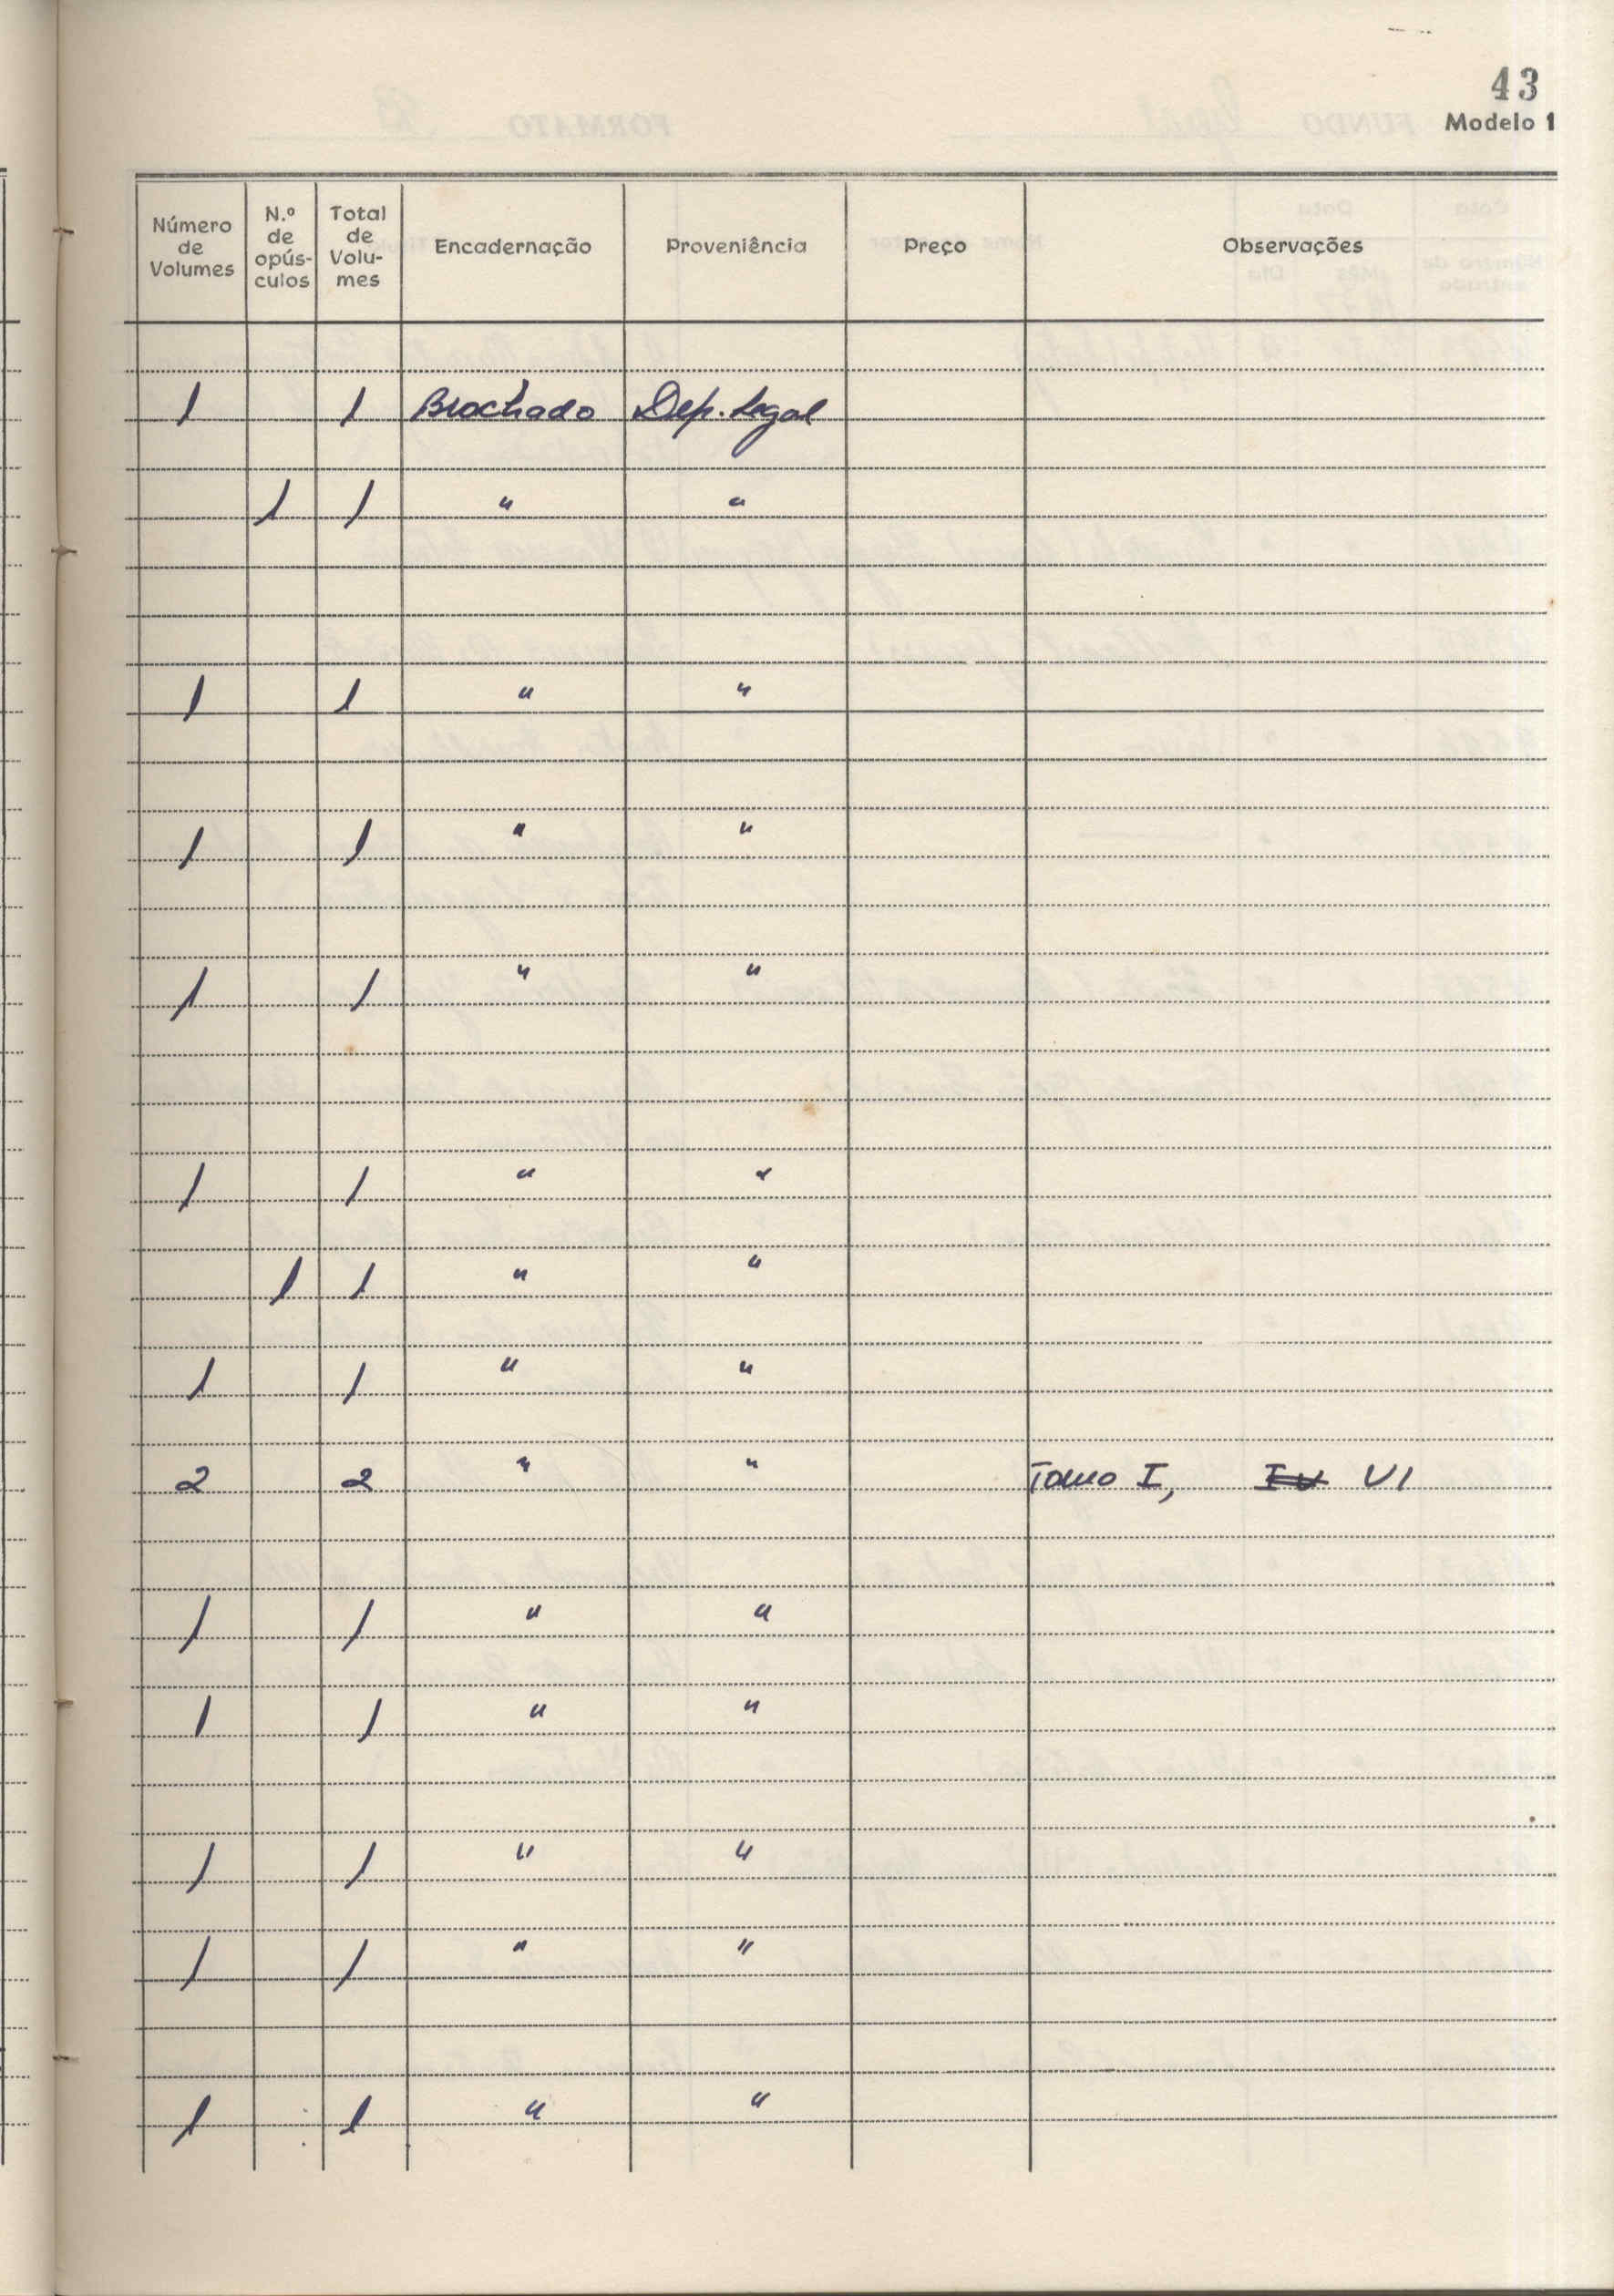 43
Modelo 1
Número de Volumes N.º de opús-culos Total de Volu-mes Encadernação Proveniência Preço Observações
1 1 Brochado Dep. Legal
1 1 " "
1 1 " "
1 1 " "
1 1 " "
1 1 " "
1 1 " "
1 1 " "
2 2 " " Tomo I, IV VI
1 1 " "
1 1 " "
1 1 " "
1 1 " "
1 1 " "